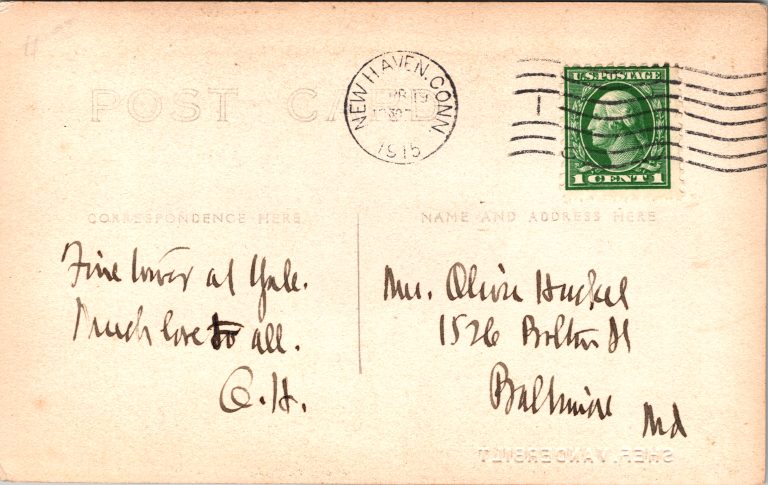 POST CARD
NEW HAVEN, CONN.
APR 19
1915
U.S. POSTAGE
1 CENT 1
CORRESPONDENCE HERE
NAME AND ADDRESS HERE
Fine tower at Yale.
Much love to all.
O.H.
Mrs. Oliver Huckel
1526 Bolton St
Baltimore
Md
VANDERBILT